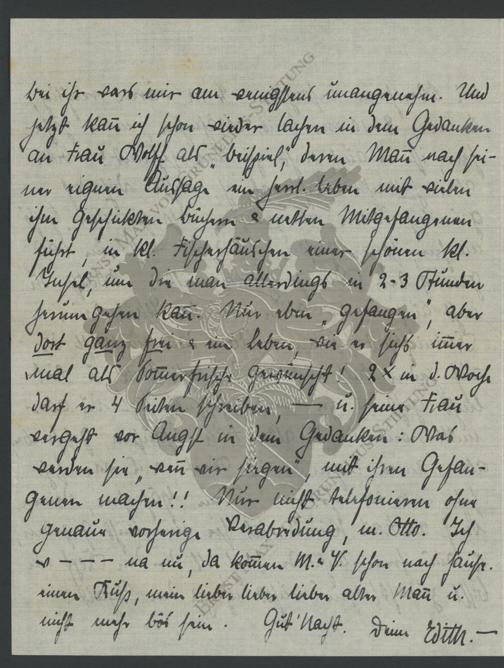 bei ihr wars mir am wenigstens unangenehm. Und
jetzt kan̄ ich schon wieder lachen in dem Gedanken
an Frau Wolff als „beispiel", deren Man̄ nach sei-
ner eignen Aussage ein herrl. Leben mit vielen
ihm geschikten büchern & netten Mitgefangenen
führt, in kl. Fischerhäuschen einer schönen kl.
Insel, um die man allerdings in 2-3 Stunden
herumgehen kan̄. Nur eben „gefangen", aber
dort ganz frei & ein Leben, wie er sichs im̄er
mal als Som̄erfrische gewünscht! 2x in d. Woche
darf er 4 Seiten schreiben, — u. seine Frau
vergeht vor Angst in dem Gedanken: Was
werden sie, „wen̄ wir siegen", mit ihren Gefan-
genen machen!! Nur nicht telefonieren ohne
genaue vorherige Verabredung, m. Otto. Ich
w - - - - na nu, da kom̄en M. & V. schon nach hause.
einen Kuss, mein lieber lieber lieber alter Man̄ u.
nicht mehr bös sein. Gut' Nacht. Deine Edith. —
ERNST MAX VON GRUNELIUS-STIFTUNG